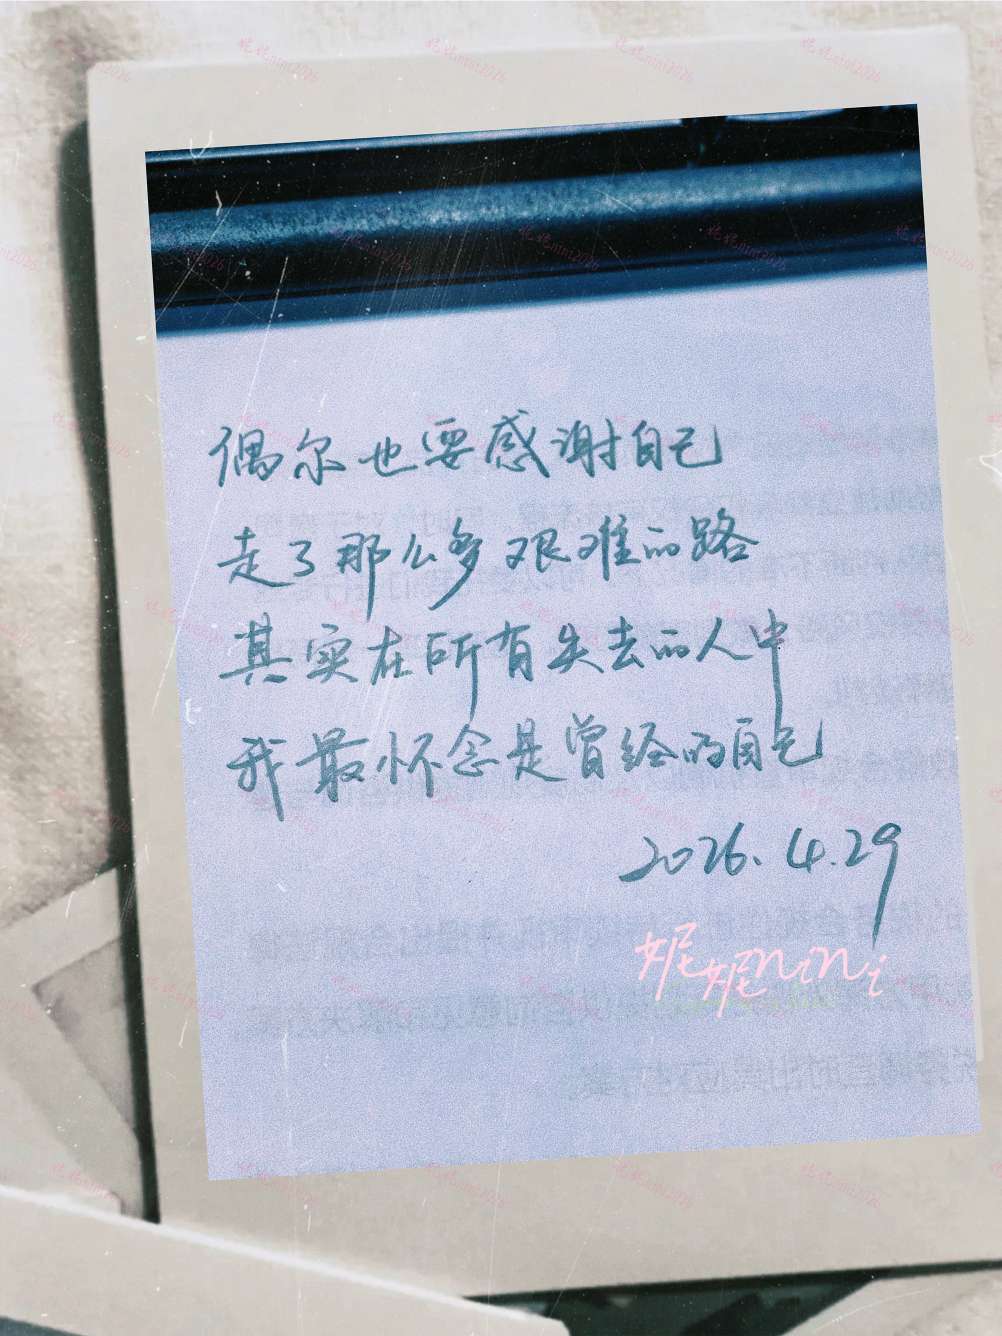 偶尔也要感谢自己
走了那么多艰难的路
其实在所有失去的人中
我最怀念是曾经的自己
2026.4.29
妮妮nini